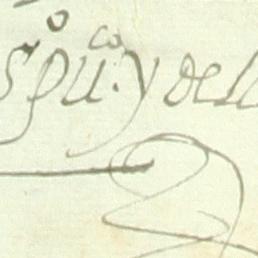 s.º pu.co y de la